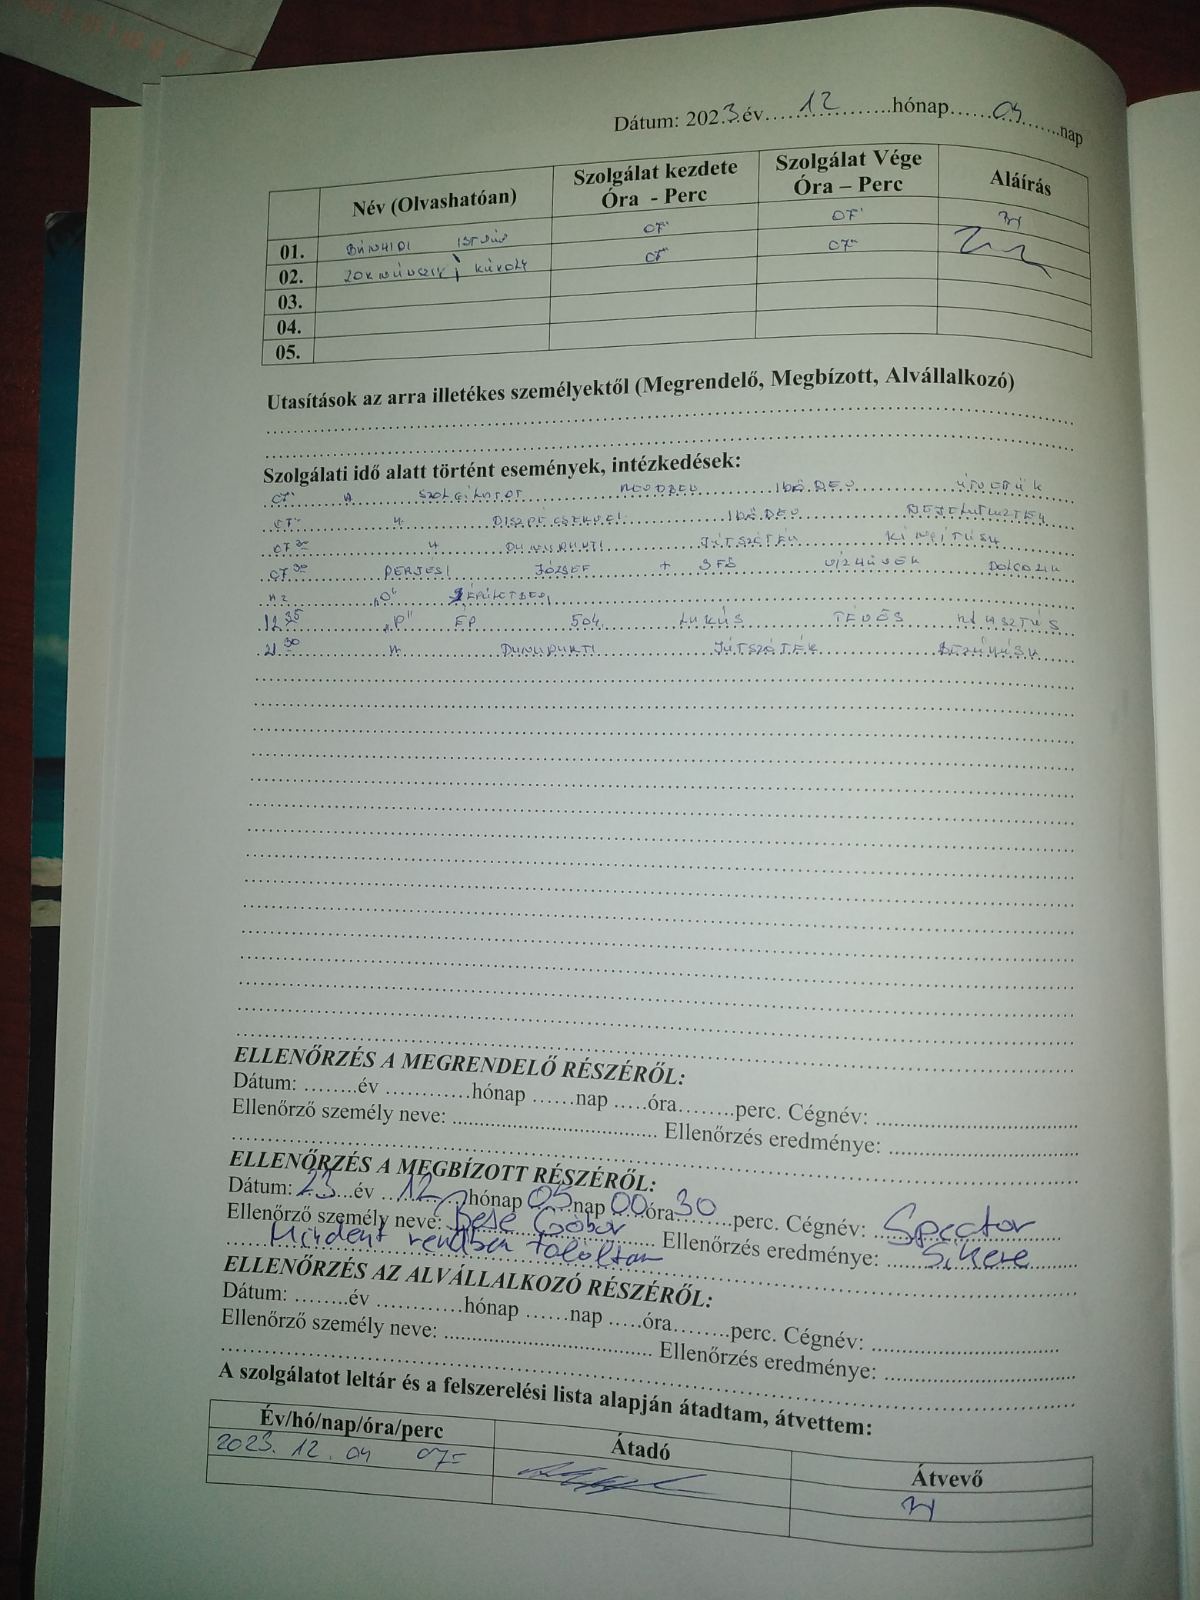 Dátum: 2023.év 12 hónap 04 nap
Név (Olvashatóan) Szolgálat kezdete Óra - Perc Szolgálat Vége Óra – Perc Aláírás
01. BÁNHIDI ISTVÁN 07 07
02. KÁROLY 07 07
03.
04.
05.
Utasítások az arra illetékes személyektől (Megrendelő, Megbízott, Alvállalkozó)
Szolgálati idő alatt történt események, intézkedések:
07 A SZOLGÁLATOT RENDBEN IDŐBEN ÁTVETTÜK
07 A DISZPÉCSERNEL IDŐBEN BEJELENTKEZTEM
07 30 A DUNAPARTI JÁTSZÓTÉR KINYITÁSA
07 30 PERJESI JÓZSEF + 3 FŐ VÍZMŰVEK DOLGOZIK
AZ „O" ÉPÜLETBEN
12 35 „P" ÉP 504. LAKÁS TÉVES RIASZTÁS
21 30 A DUNAPARTI JÁTSZÓTÉR BEZÁRÁSA
ELLENŐRZÉS A MEGRENDELŐ RÉSZÉRŐL:
Dátum: ........év ............hónap ......nap .....óra........perc. Cégnév: ...............................
Ellenőrző személy neve: ................................... Ellenőrzés eredménye: ...............................
ELLENŐRZÉS A MEGBÍZOTT RÉSZÉRŐL:
Dátum: 23 év 12 hónap 05 nap 00 óra 30 perc. Cégnév: Spector
Ellenőrző személy neve: Bese Gábor Ellenőrzés eredménye:
Mindent rendben találtam
ELLENŐRZÉS AZ ALVÁLLALKOZÓ RÉSZÉRŐL:
Dátum: ........év ............hónap ......nap .....óra........perc. Cégnév: ...............................
Ellenőrző személy neve: ................................... Ellenőrzés eredménye: ...............................
A szolgálatot leltár és a felszerelési lista alapján átadtam, átvettem:
Év/hó/nap/óra/perc Átadó Átvevő
2023. 12. 04 07